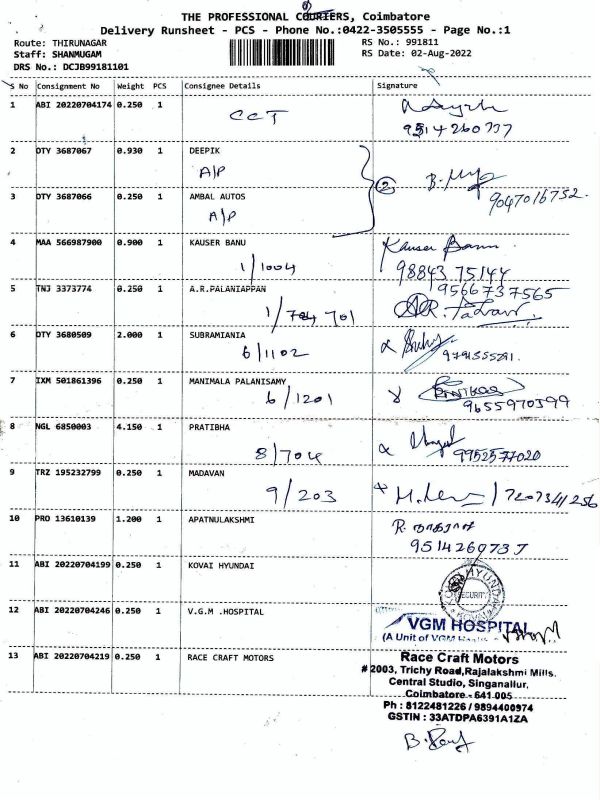 THE PROFESSIONAL COURIERS, Coimbatore
Delivery Runsheet - PCS - Phone No.:0422-3505555 - Page No.:1
Route: THIRUNAGAR RS No.: 991811
Staff: SHANMUGAM RS Date: 02-Aug-2022
DRS No.: DCJB99181101
S No Consignment No Weight PCS Consignee Details Signature
1 ABI 20220704174 0.250 1 CCT
2 DTY 3687067 0.930 1 DEEPIK
A/P
2
3 DTY 3687066 0.250 1 AMBAL AUTOS
9047016752.
A/P
4 MAA 566987900 0.900 1 KAUSER BANU Kauser Banu
1/1004 98843 75144
5 TNJ 3373774 0.250 1 A.R.PALANIAPPAN 9566737565
1/704 701
6 DTY 3680509 2.000 1 SUBRAMIANIA
6/1102
7 IXM 501861396 0.250 1 MANIMALA PALANISAMY
6/1201 9655970599
8 NGL 6850003 4.150 1 PRATIBHA
8/704 9952577020
9 TRZ 195232799 0.250 1 MADAVAN
9/203 7207341256
10 PRO 13610139 1.200 1 APATNULAKSHMI
11 ABI 20220704199 0.250 1 KOVAI HYUNDAI
SECURITY
12 ABI 20220704246 0.250 1 V.G.M .HOSPITAL
VGM HOSPITAL
(A Unit of VGM
13 ABI 20220704219 0.250 1 RACE CRAFT MOTORS Race Craft Motors
# 2003, Trichy Road,Rajalakshmi Mills.
Central Studio, Singanallur,
Coimbatore - 641 005
Ph : 8122481226 / 9894400974
GSTIN : 33ATDPA6391A1ZA